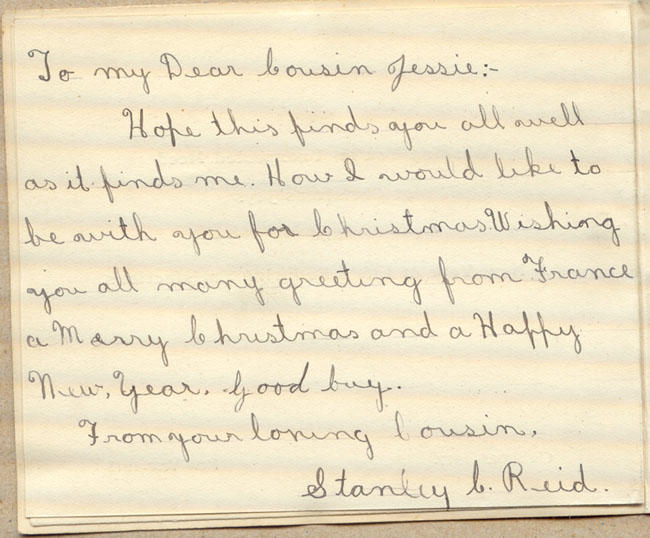 To my Dear Cousin Jessie:-
Hope this finds you all well
as it finds me. How I would like to
be with you for Christmas Wishing
you all many greeting from France
a Merry Christmas and a Happy
New, Year. Good buy.
From your loving Cousin,
Stanley C. Reid.